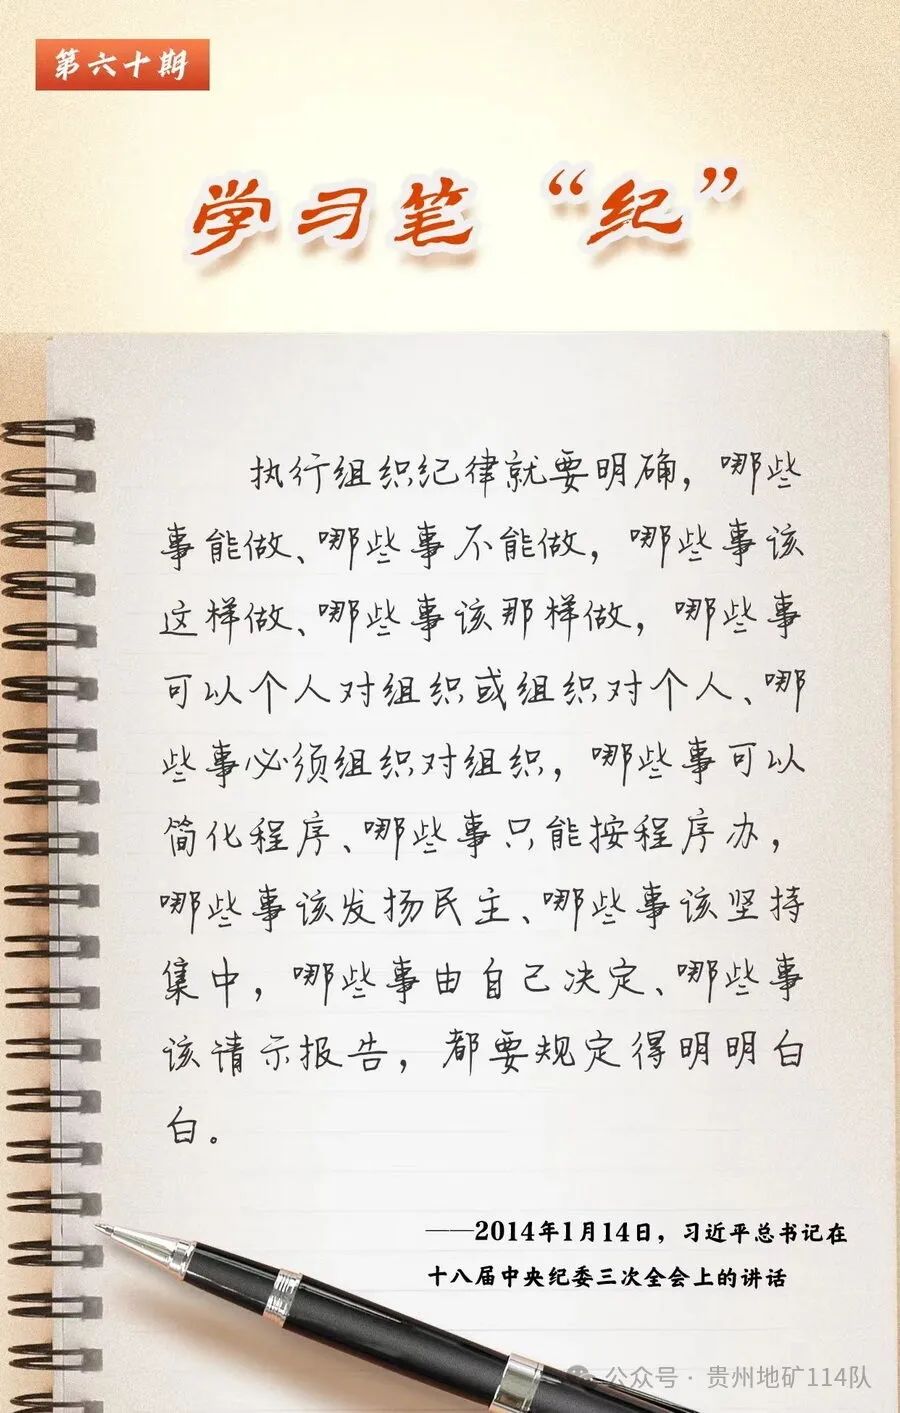 第六十期
学习笔“纪”
执行组织纪律就要明确，哪些
事能做、哪些事不能做，哪些事该
这样做、哪些事该那样做，哪些事
可以个人对组织或组织对个人、哪
些事必须组织对组织，哪些事可以
简化程序、哪些事只能按程序办，
哪些事该发扬民主、哪些事该坚持
集中，哪些事由自己决定、哪些事
该请示报告，都要规定得明明白
白。
——2014年1月14日，习近平总书记在
十八届中央纪委三次全会上的讲话
公众号·贵州地矿114队